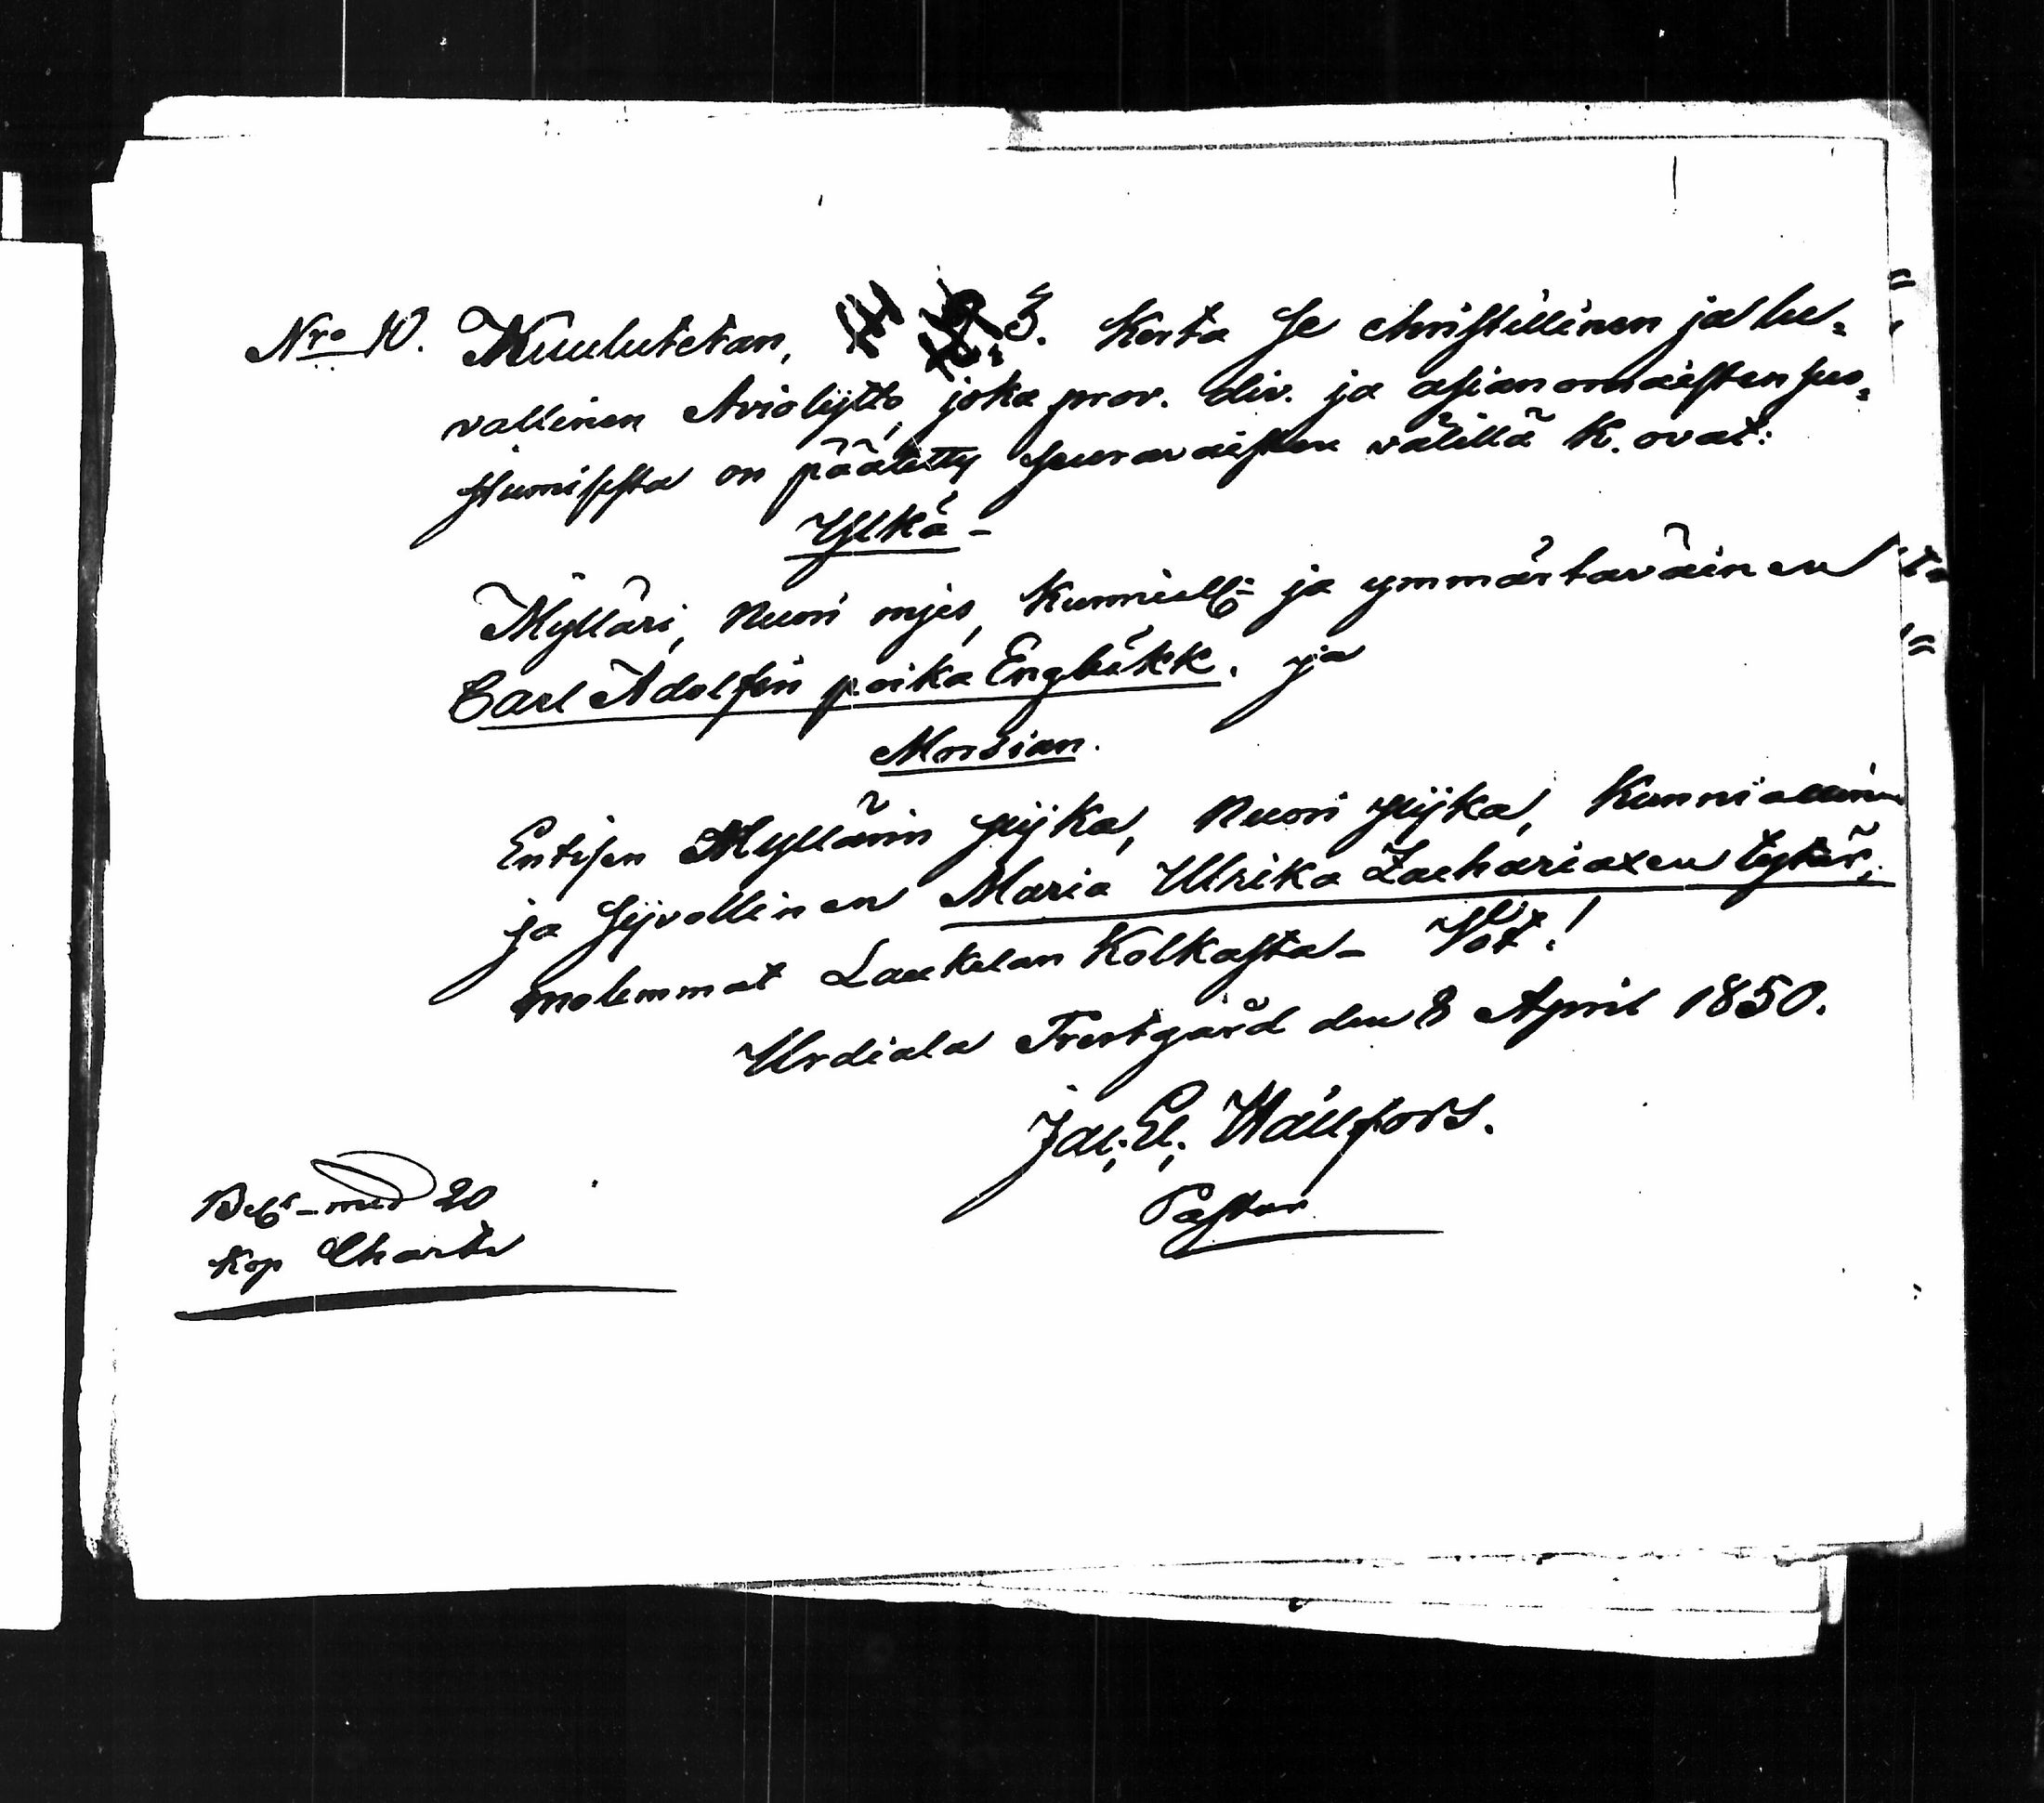 Nro 10. Kuulutetan, 3. Kerta se christillinen ja lu=
vallinen Avioliitto, joka prov. div. ja asianomaisten suo=
stumisesta on päätetty seuravaisten välillä K. ovat:
Ylkä -
Mylläri, Nuori mjes, Kunniall: ja ymmärtäväinen
Carl Adolfin poika Engbäkk. ja
Morsian.
Entisen Myllärin pijka, Nuori pijka, Kunniallinen
ja sijvollinen Maria Ulrika Zachariaxen tytär,
molemmat Laukelan Kolkasta - Vot!
Urdiala Prestgård den 8 April 1850.
Jac. El. Wällfors.
Pastor
med 20
Kop Charta